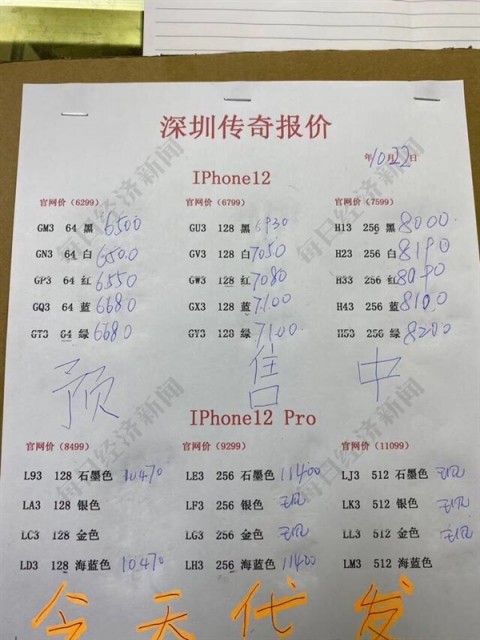 深圳传奇报价
年10月22日
IPhone12
官网价（6299） 官网价（6799） 官网价（7599）
GM3 64 黑 6500 GU3 128 黑 6930 H13 256 黑 8000
GN3 64 白 6500 GV3 128 白 7050 H23 256 白 8190
GP3 64 红 6550 GW3 128 红 7080 H33 256 红 8090
GQ3 64 蓝 6680 GX3 128 蓝 7100 H43 256 蓝 8100
GT3 64 绿 6680 GY3 128 绿 7100 H53 256 绿 8200
预 售 中
IPhone12 Pro
官网价（8499） 官网价（9299） 官网价（11099）
L93 128 石墨色 10470 LE3 256 石墨色 11400 LJ3 512 石墨色
LA3 128 银色 LF3 256 银色 LK3 512 银色
LC3 128 金色 LG3 256 金色 LL3 512 金色
LD3 128 海蓝色 10470 LH3 256 海蓝色 11400 LM3 512 海蓝色
今天代发
每日经济新闻
每日经济新闻
每日经济新闻
每日经济新闻